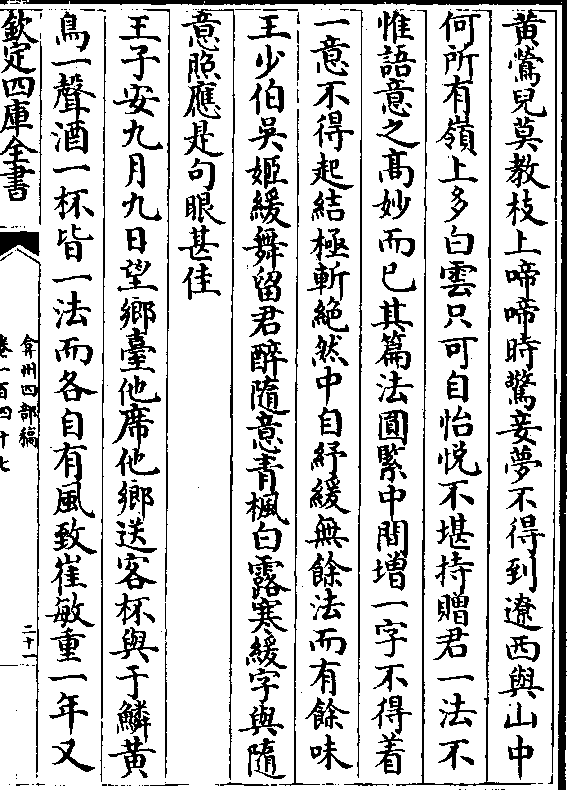 黄鶯兒莫教枝上啼啼時驚妾夢不得到遼西與山中
何所有嶺上多白雲只可自怡悦不堪持贈君一法不
惟語意之髙妙而已其篇法圓緊中間増一字不得着
一意不得起結極斬絶然中自紓緩無餘法而有餘味
王少伯吳姬緩舞留君醉隨意青楓白露寒緩字與隨
意照應是句眼甚佳
王子安九月九日望鄉臺他席他鄉送客杯與于鱗黄
鳥一聲酒一杯皆一法而各自有風致崔敏重一年又
欽定四庫全書
弇州四部稿
卷一百四十七
二十一